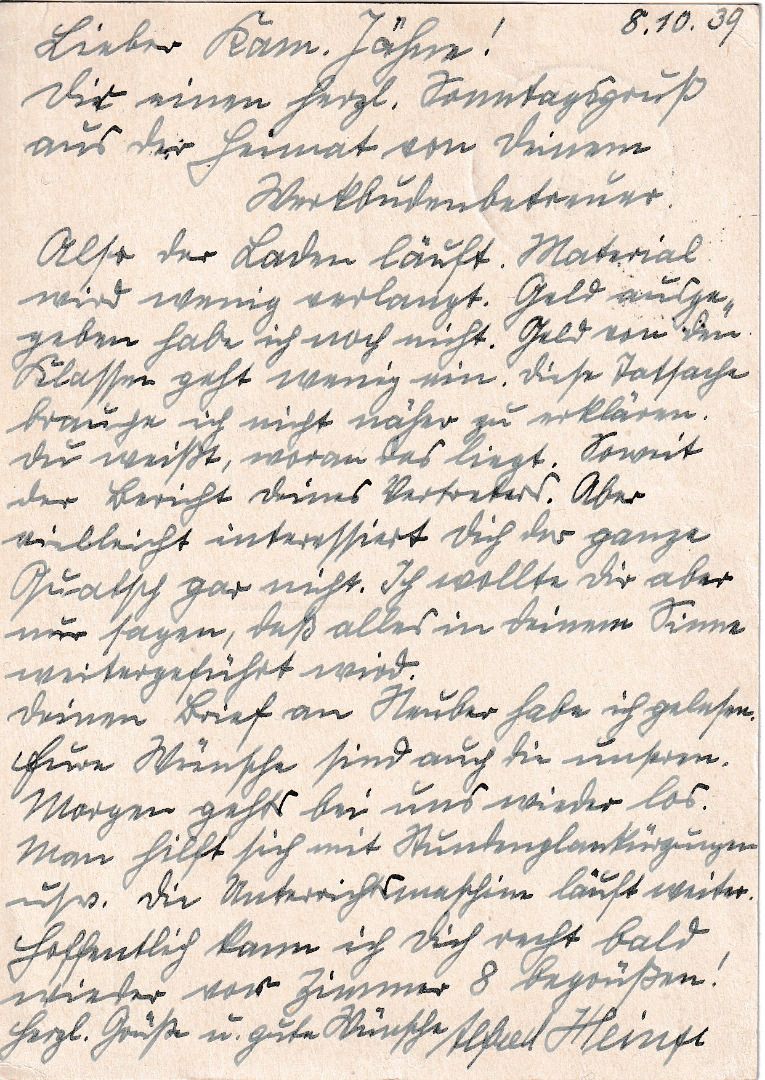 8.10.39
Lieber Kam. Jähne!
Dir einen herzl. Sonntagsgruß
aus der Heimat von Deinem
Werkbudenbetreuer.
Also der Laden läuft. Material
wird wenig verlangt. Geld ausge-
geben habe ich noch nicht. Geld von den
Klassen geht wenig ein. Diese Tatsache
brauche ich nicht näher zu erklären.
Du weißt, woran das liegt. Soweit
der Bericht Deines Vertreters. Aber
vielleicht interessiert Dich der ganze
Quatsch gar nicht. Ich wollte Dir aber
nur sagen, daß alles in Deinem Sinne
weitergeführt wird.
Deinen Brief an Neuber habe ich gelesen.
Eure Wünsche sind auch die unseren.
Morgen gehts bei uns wieder los.
Man hilft sich mit Stundenplankürzungen
usw. Die Unterrichtsmaschine läuft weiter.
Hoffentlich kann ich Dich recht bald
wieder vor Zimmer 8 begrüßen!
Herzl. Grüße u. gute Wünsche Alfred